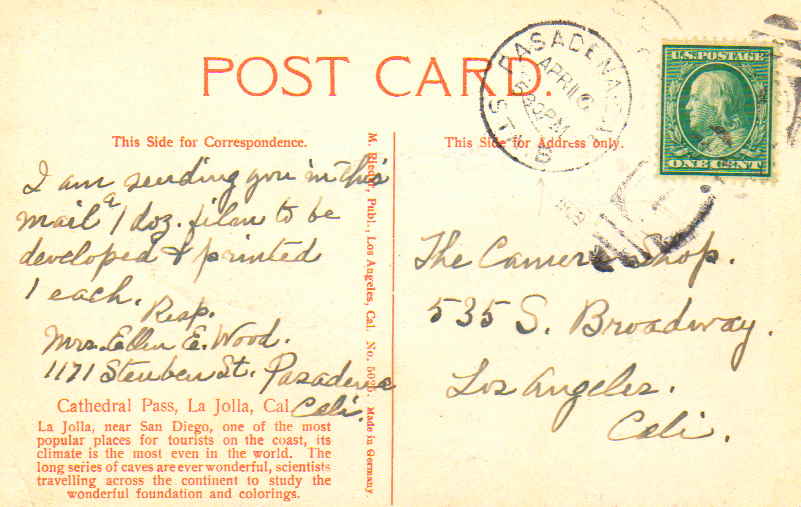 POST CARD.
U.S. POSTAGE
ONE CENT
PASADENA
APR
5 30 PM
This Side for Correspondence.
This Side for Address only.
I am sending you in this
mail a 1 doz. films to be
developed & printed
1 each.
Resp.
Mrs. Ellen E. Wood.
1171 Steuben St. Pasadena
Cali.
The Camera Shop.
535 S. Broadway.
Los Angeles.
Cali.
M. Rieder, Publ., Los Angeles, Cal. No. Made in Germany.
Cathedral Pass, La Jolla, Cal.
La Jolla, near San Diego, one of the most
popular places for tourists on the coast, its
climate is the most even in the world. The
long series of caves are ever wonderful, scientists
travelling across the continent to study the
wonderful foundation and colorings.